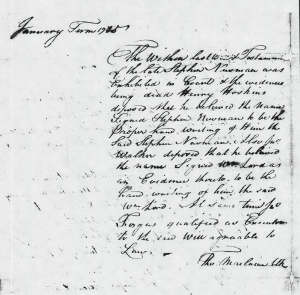 January Term 1785
The Within last Will & Testament
of the late Stephen Newman was
Exhibited in Court & the evidences
being dead Henry Hoskins
deposed that he believed the Name
Signed Stephen Newman to be the
proper hand writing of Him the
Said Stephen Newman; Also
Walton deposed that he believed
the name Signed as
in Evidence thereto to be the
hand writing of him the said
At Same time
Fergus qualified as Executor
to the said Will agreeable to
Law.
Tho. Maclaine Clk